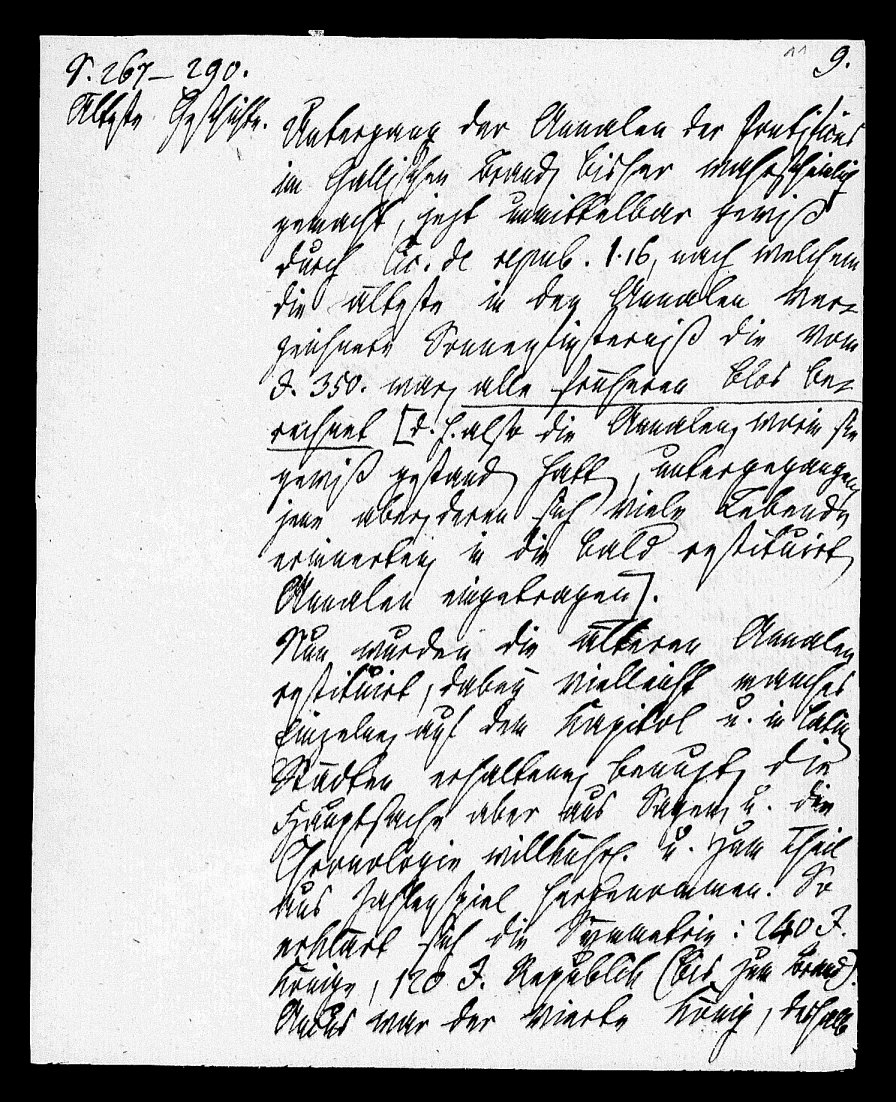 S. 267–290.
9.
Älteste Geschichte.
Untergang der Annalen der Pontifices
im Gallischen Brand, bisher wahrscheinlich
gemacht, jezt unmittelbar gewiß
durch Cic. de repub. 1.16, nach welchem
die älteste in den Annalen ver-
zeichnete Sonnenfinsterniß die vom
J. 350. war, alle früheren blos be-
rechnet [d. h. also die Annalen, worin sie
gewiß gestanden hatten, untergegangen
jene aber, deren sich viele Lebende
erinnerten, in die bald restituirten
Annalen eingetragen].
Nun wurden die älteren Annalen
restituirt, dabey vielleicht manches
Einzelne, auf dem Kapitol u. in Latin.
Städten erhaltene, benuzt, die
Hauptsache aber aus Sagen, u. die
Chronologie willkührl. u. zum Theil
aus Zahlenspiel hergenommen. So
erklärt sich die Symmetrie: 240 J.
Könige, 120 J. Republik (bis zum Brand).
Ancus war der vierte König, deshalb